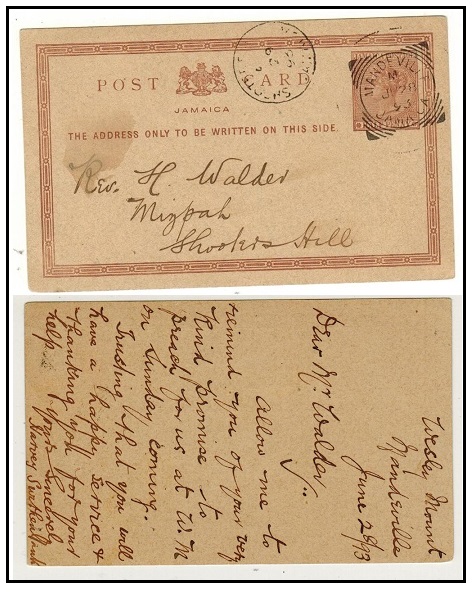 POST CARD
JAMAICA
THE ADDRESS ONLY TO BE WRITTEN ON THIS SIDE.
MANDEVILLE
JAMAICA
Rev. H Walder
Mizpah
Shooters Hill
Wesley Mount
Mandeville
June 28/93
Dear Mr Walder
Allow me to
remind you of your very
kind promise to
preach for us at W. M
on Sunday coming.
Trusting that you will
have a happy service &
thanking you for your
help
Yours Sincerely
Harvey